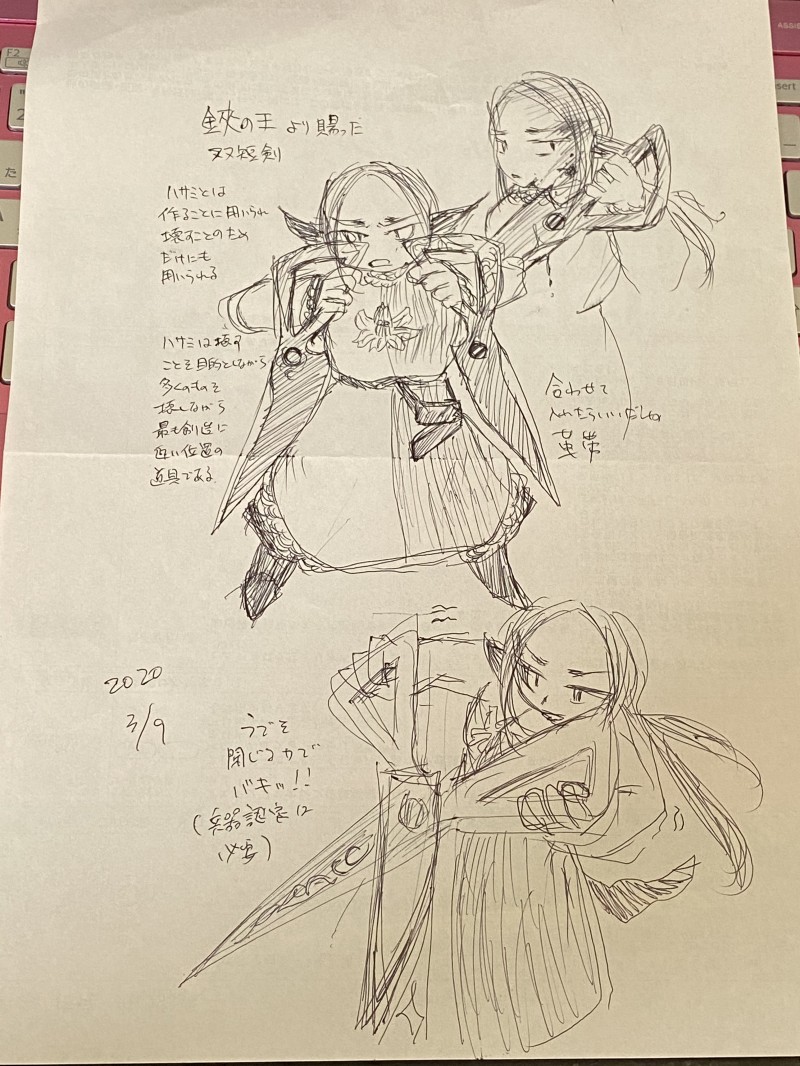 鋏の王より賜った
双短剣
ハサミとは
作ることに用いられ
壊すことのため
だけにも
用いられる
ハサミは壊す
ことを目的としながら
多くのものを
壊しながら
最も創造に
近い位置の
道具である
合わせて
入れたらいいだしね
2020
3/9
うでを
閉じる力で
バキッ!!
(兵器認定は
必要)
F2